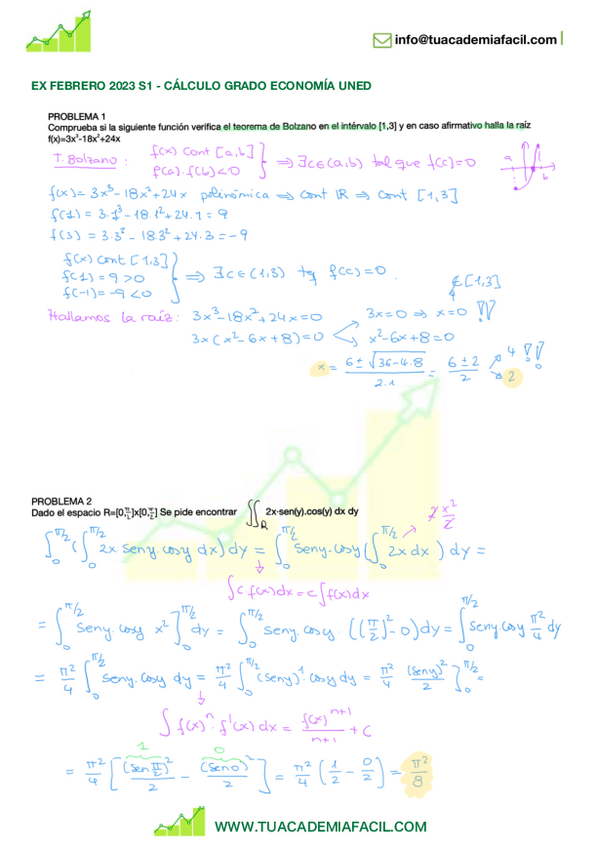 info@tuacademiafacil.com
EX FEBRERO 2023 S1 - CÁLCULO GRADO ECONOMÍA UNED
PROBLEMA 1
Comprueba si la siguiente función verifica el teorema de Bolzano en el intérvalo [1,3] y en caso afirmativo halla la raíz
f(x)=3x³-18x²+24x
T. Bolzano: f(x) cont [a,b] f(a).f(b)<0 } ⇒ ∃c∈(a,b) tal que f(c)=0
a b
f(x) = 3x³-18x²+24x polinómica ⇒ cont ℝ ⇒ cont [1,3]
f(1) = 3·1³-18·1²+24·1 = 9
f(3) = 3·3³-18·3²+24·3 = -9
f(x) cont [1,3]
f(1) = 9 >0 } ⇒ ∃c∈(1,3) tq f(c)=0.
f(-1) = -9 <0
∉[1,3]
Hallamos la raíz: 3x³-18x²+24x=0 3x=0 ⇒ x=0 !!
3x(x²-6x+8)=0 x²-6x+8=0
x = (6±√(36-4·8))/(2·1) = (6±2)/2 4 !! 2
PROBLEMA 2
Dado el espacio R=[0,π/2]x[0,π/2] Se pide encontrar ∬_R 2x·sen(y).cos(y) dx dy
2x²/2
∫₀^(π/2) (∫₀^(π/2) 2x seny.cosy dx) dy = ∫₀^(π/2) seny.cosy (∫₀^(π/2) 2x dx) dy =
∫c f(x)dx = c∫f(x)dx
= ∫₀^(π/2) seny.cosy x²]₀^(π/2) dy = ∫₀^(π/2) seny.cosy ((π/2)²-0) dy = ∫₀^(π/2) seny cosy π²/4 dy
= π²/4 ∫₀^(π/2) seny.cosy dy = π²/4 ∫₀^(π/2) (seny)¹ cosy dy = π²/4 (seny)²/2 ]₀^(π/2) =
∫f(x)ⁿ·f'(x)dx = f(x)ⁿ⁺¹/(n+1) + C
1 0
= π²/4 [(sen π/2)²/2 - (sen0)²/2] = π²/4 (1/2 - 0/2) = π²/8
WWW.TUACADEMIAFACIL.COM